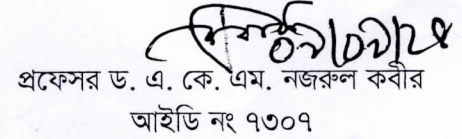 প্রফেসর ড. এ. কে. এম. নজরুল কবীর
আইডি নং ৭৩০৭